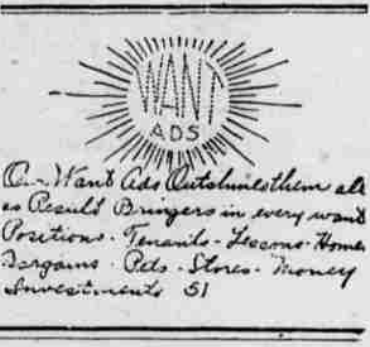 WANT
ADS
Our Want Ads Outshines them all
as Result Bringers in every want
Positions - Tenants - Lessons - Homes
Bargains - Pets - Stores - Money
Investments 51